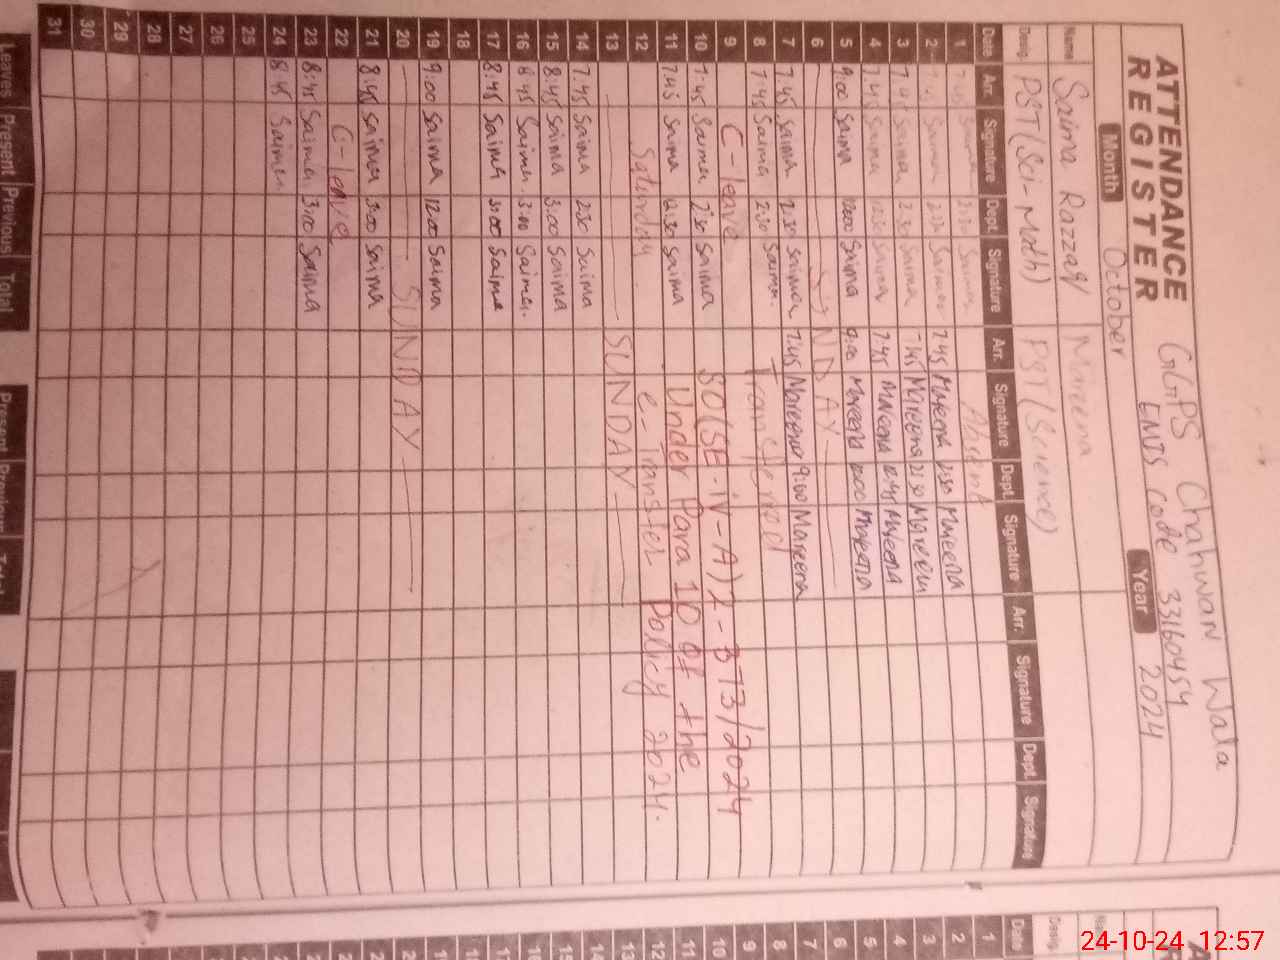 ATTENDANCE REGISTER
GGPS Chahwan Wala
EMIS Code 33160454
Month October Year 2024
Name Saima Razzaq Mareena
Desig. PST(Sci-Math) PST(Science)
Date Arr. Signature Dept. Signature Arr. Signature Dept. Signature Arr. Signature Dept. Signature
1 7:45 Saima 2:30 Saima Absent
2 7:45 Saima 2:30 Saima 7:45 Mareena 2:30 Mareena
3 7:45 Saima 2:30 Saima 7:45 Mareena 2:30 Mareena
4 7:45 Saima 12:30 Saima 7:45 Mareena 12:45 Mareena
5 9:00 Saima 12:00 Saima 9:00 Mareena 12:00 Mareena
6 SUNDAY
7 7:45 Saima 2:30 Saima 7:45 Mareena 9:00 Mareena
8 7:45 Saima 2:30 Saima Transferred
9 C-leave SO(SE-iv-A)2-373/2024
10 7:45 Saima 2:30 Saima Under Para 10 of the
11 7:45 Saima 12:30 Saima e-Transfer Policy 2024.
12 Saturday
13 SUNDAY
14 7:45 Saima 2:30 Saima
15 8:45 Saima 3:00 Saima
16 8:45 Saima 3:00 Saima
17 8:45 Saima 3:00 Saima
18
19 9:00 Saima 12:00 Saima
20 SUNDAY
21 8:45 Saima 3:00 Saima
22 C-leave
23 8:45 Saima 3:00 Saima
24 8:45 Saima
25
26
27
28
29
30
31
Leaves Present Previous Total Present Previous Total
Name
Desig.
Date 1 2 3 4 5 6 7 8 9 10 11 12 13 14 15 16 17
24-10-24 12:57